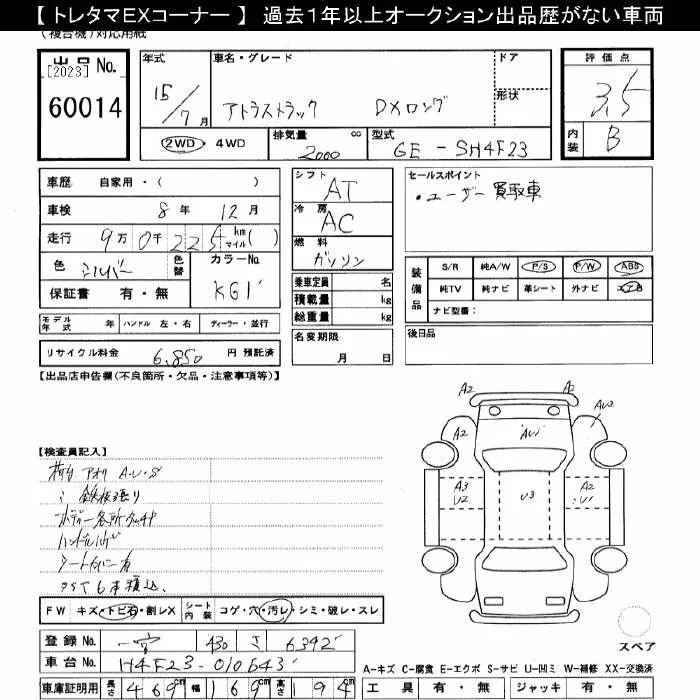 【 トレタマEXコーナー 】 過去1年以上オークション出品歴がない車両
(複合機)対応用紙
出品 No.
[2023]
60014
年式
15/7月
車名・グレード
アトラストラック DXロング
ドア
形状
2WD・4WD
排気量 cc
2000
型式
GE-SH4F23
評価点
3.5
内装
B
車歴 自家用・( )
車検 8年 12月
走行 9万0千225 km マイル( )
色 シルバー
色替
カラーNo.
KG1
保証書 有・無
シフト
AT
冷房
AC
燃料
ガソリン
乗車定員 名
積載量 kg
総重量 kg
モデル年式 年
ハンドル 左・右
ディーラー・並行
リサイクル料金 6,850 円 預託済
名変期限
月 日
セールスポイント
・ユーザー買取車
装備品
S/R 純A/W P/S P/W ABS
純TV 純ナビ 革シート 外ナビ エアB
ナビ型番:
後日品
【出品店申告欄(不良箇所・欠品・注意事項等)】
【検査員記入】
荷台アオリ A.U.S
〃 鉄板張り
ボディー各所タッチP
シートカバー有
タスト6本積込
FW キズ・トビ石・割レX
シート内装 コゲ・穴・汚レ・シミ・破レ・スレ
A2
A2
A2
AU2
AU1
A3
U2
U3
A2
U1
スペア
登録 No. 一宮 430 さ 6392
車台 No. H4F23-010643
車庫証明用 長さ 469cm 幅 169cm 高さ 194cm
A-キズ C-腐食 E-エクボ S-サビ U-凹ミ W-補修 XX-交換済
工具 有・無 ジャッキ 有・無